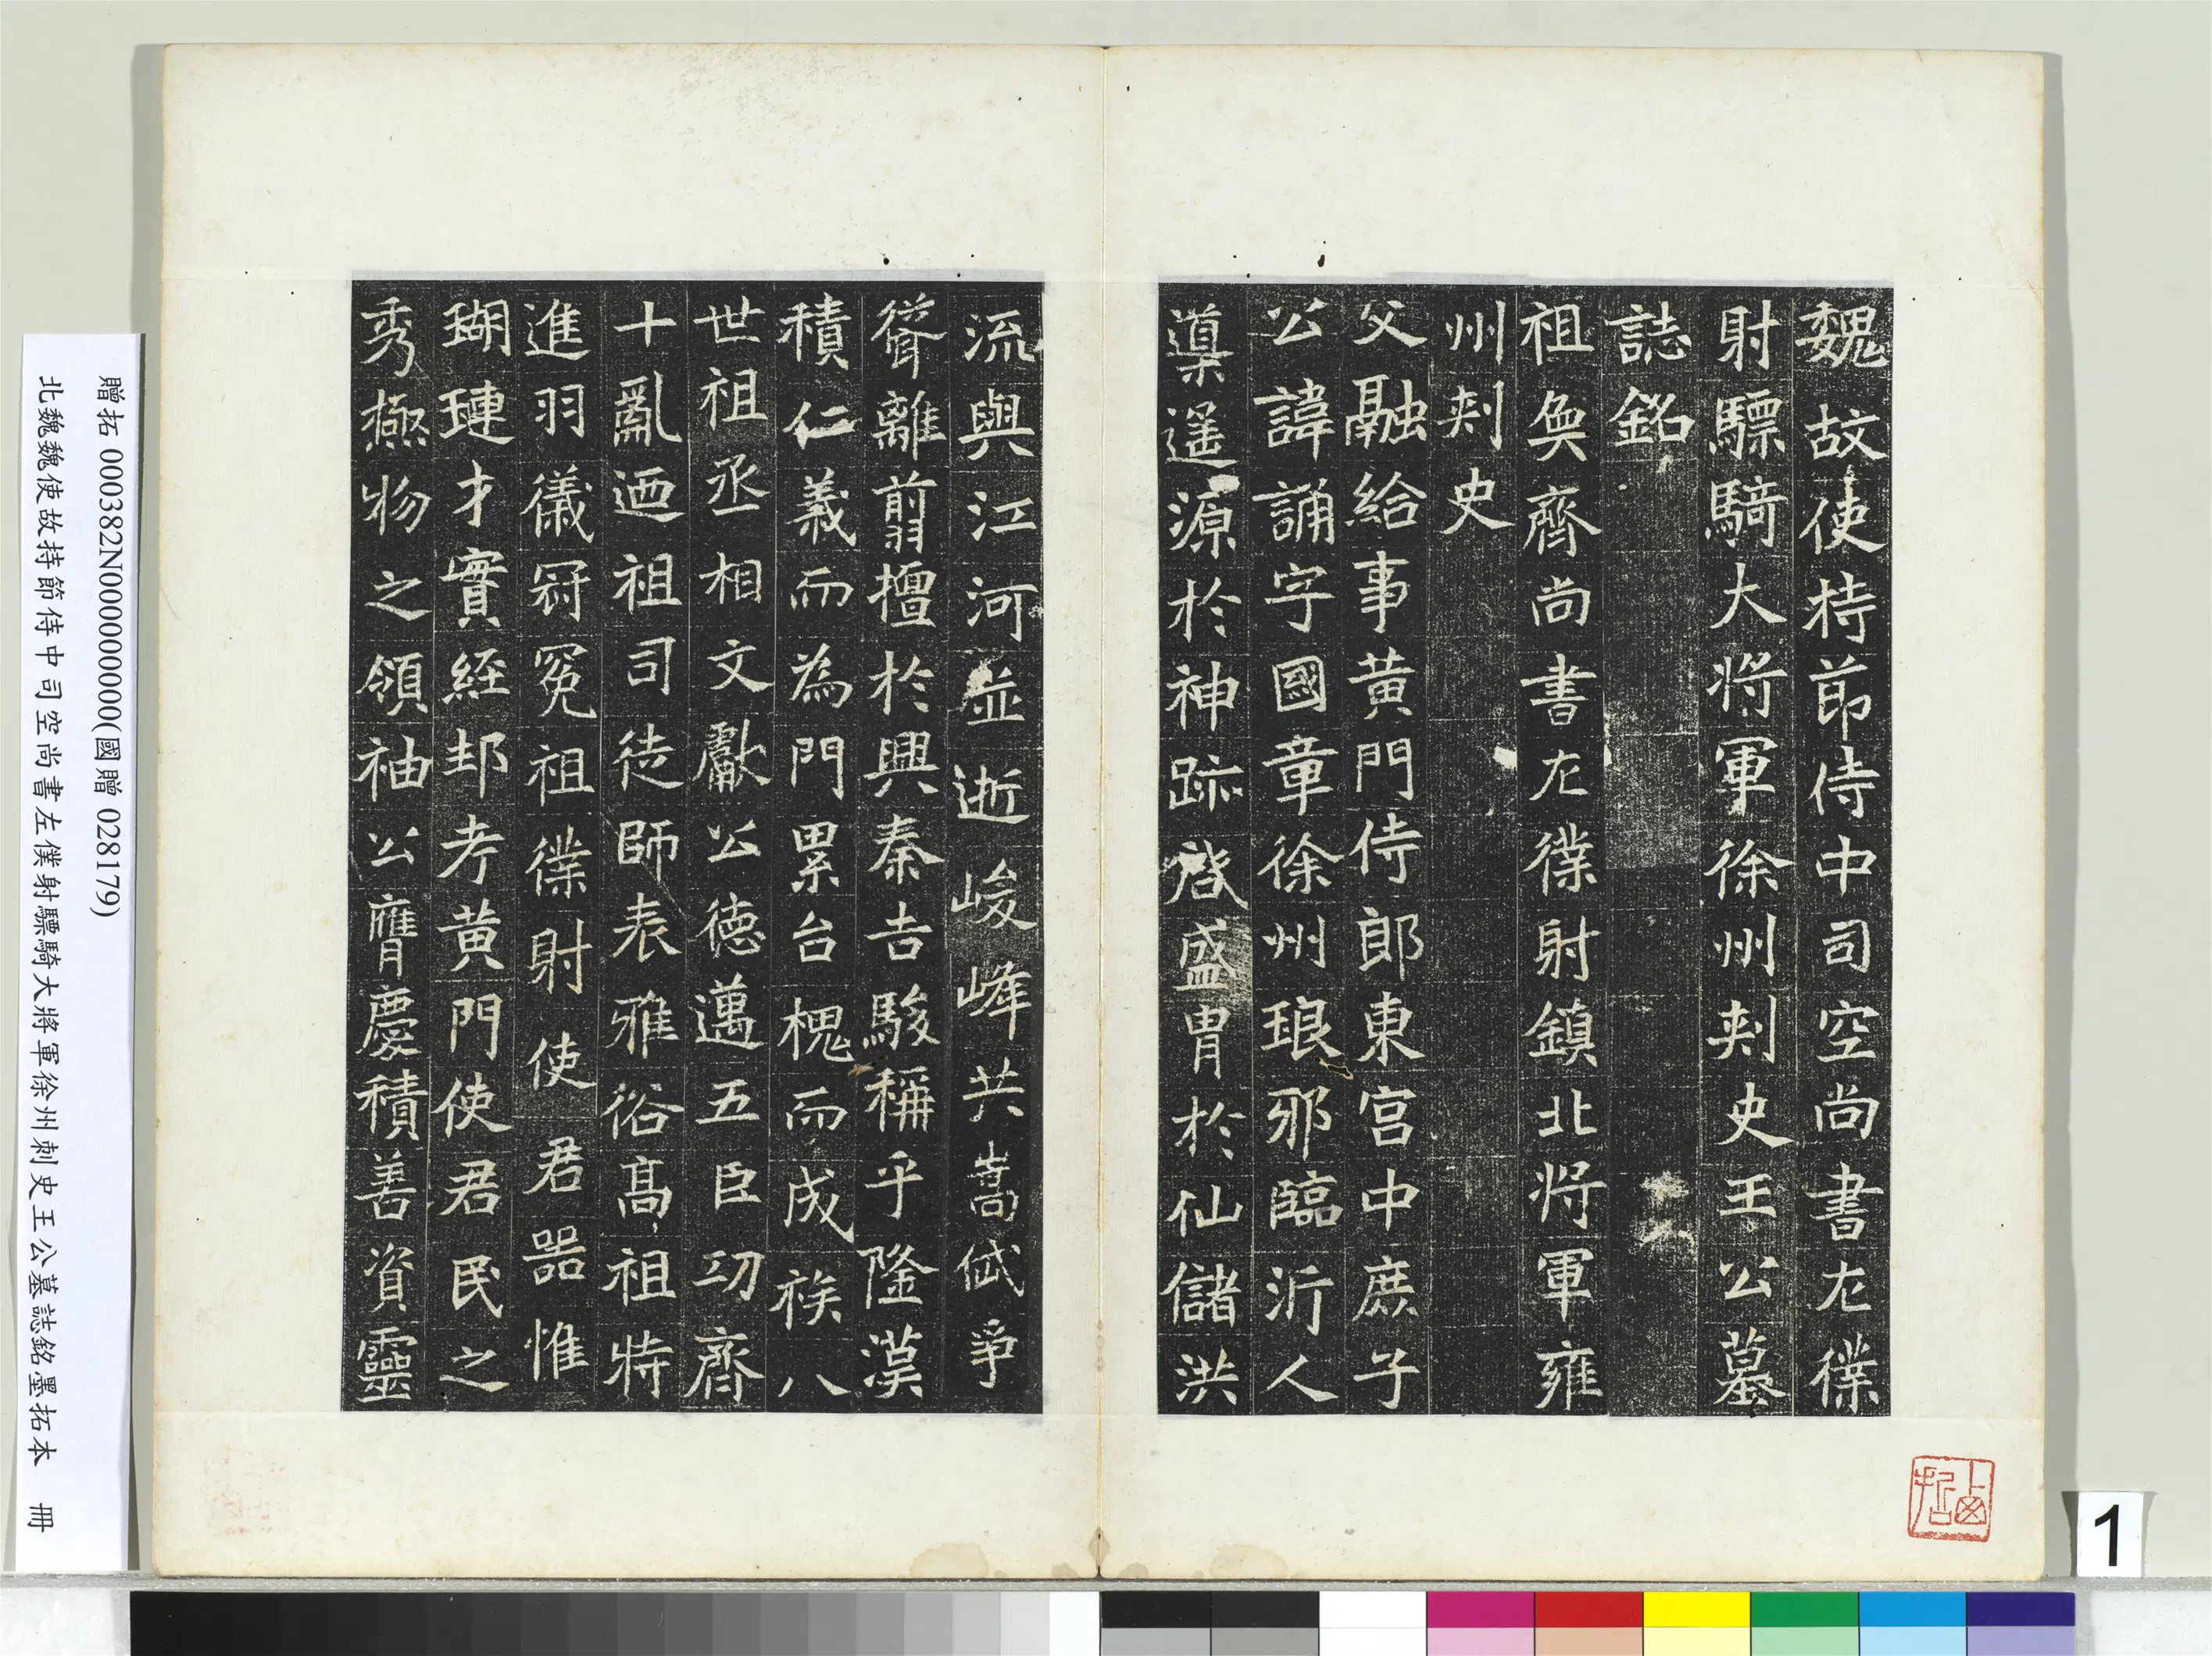 魏故使持節侍中司空尚書左僕
射驃騎大將軍徐州刺史王公墓
誌銘
祖奐齊尚書左僕射鎮北將軍雍
州刺史
父融給事黃門侍郎東宮中庶子
公諱誦字國章徐州琅邪臨沂人
導遥源於神跡啓盛胄於仙儲洪
流與江河並逝峻峰共嵩岱爭
聳離翦擅於興秦吉駿稱乎隆漢
積仁義而為門累台槐而成族八
世祖丞相文獻公德邁五臣功齊
十亂迺祖司徒師表雅俗高祖特
進羽儀冠冕祖僕射使君器惟
瑚璉才實經邦考黃門使君民之
秀極物之領袖公膺慶積善資靈
贈拓 000382N000000000(國贈 028179)
北魏魏使故持節侍中司空尚書左僕射驃騎大將軍徐州刺史王公墓誌銘墨拓本 冊
1